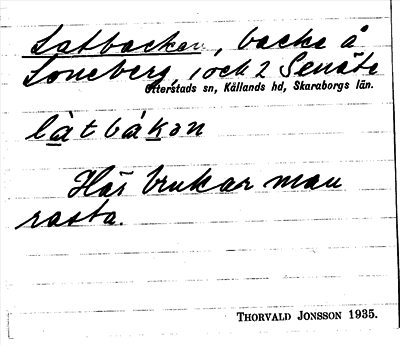 Latbacken, backe å
Loneberg, 1 och 2 Senäte
Otterstads sn, Kållands hd, Skaraborgs län.
làtbákən
Här brukar man
rasta.
THORVALD JONSSON 1935.